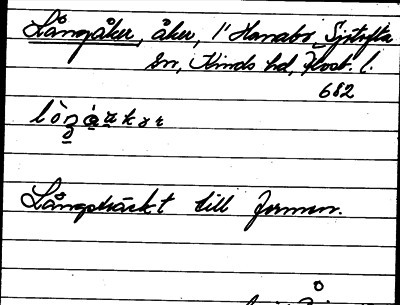 Långåker, åker, 1" Hanabo, Sjötofta
sn, Kinds hd, Älvsb. l.
682
Långsträckt till formen.